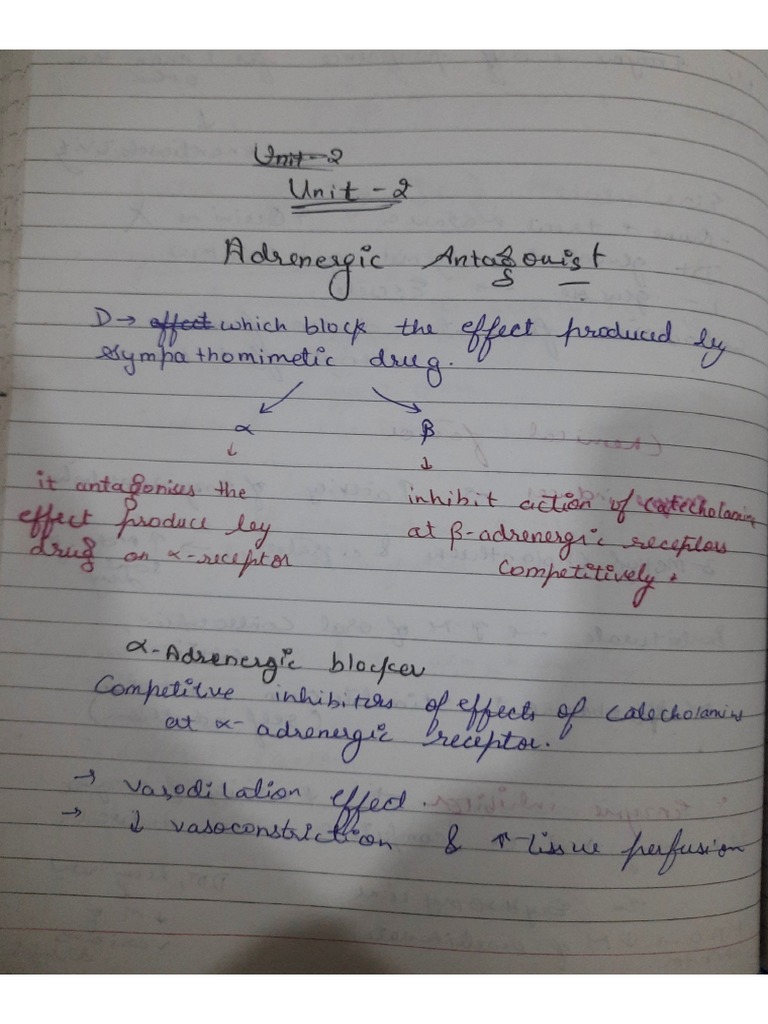 Unit-2
Unit - 2
Adrenergic Antagonist
D → effect which block the effect produced by
sympathomimetic drug.
α β
↓ ↓
it antagonises the
effect produce by
drug on α-receptor
inhibit action of catecholamin
at β-adrenergic receptors
competitively.
α-Adrenergic blocker
Competitve inhibitors of effects of catecholamins
at α- adrenergic receptor.
→ vasodilation effect.
→ ↓ vasoconstriction & ↑ tissue perfusion